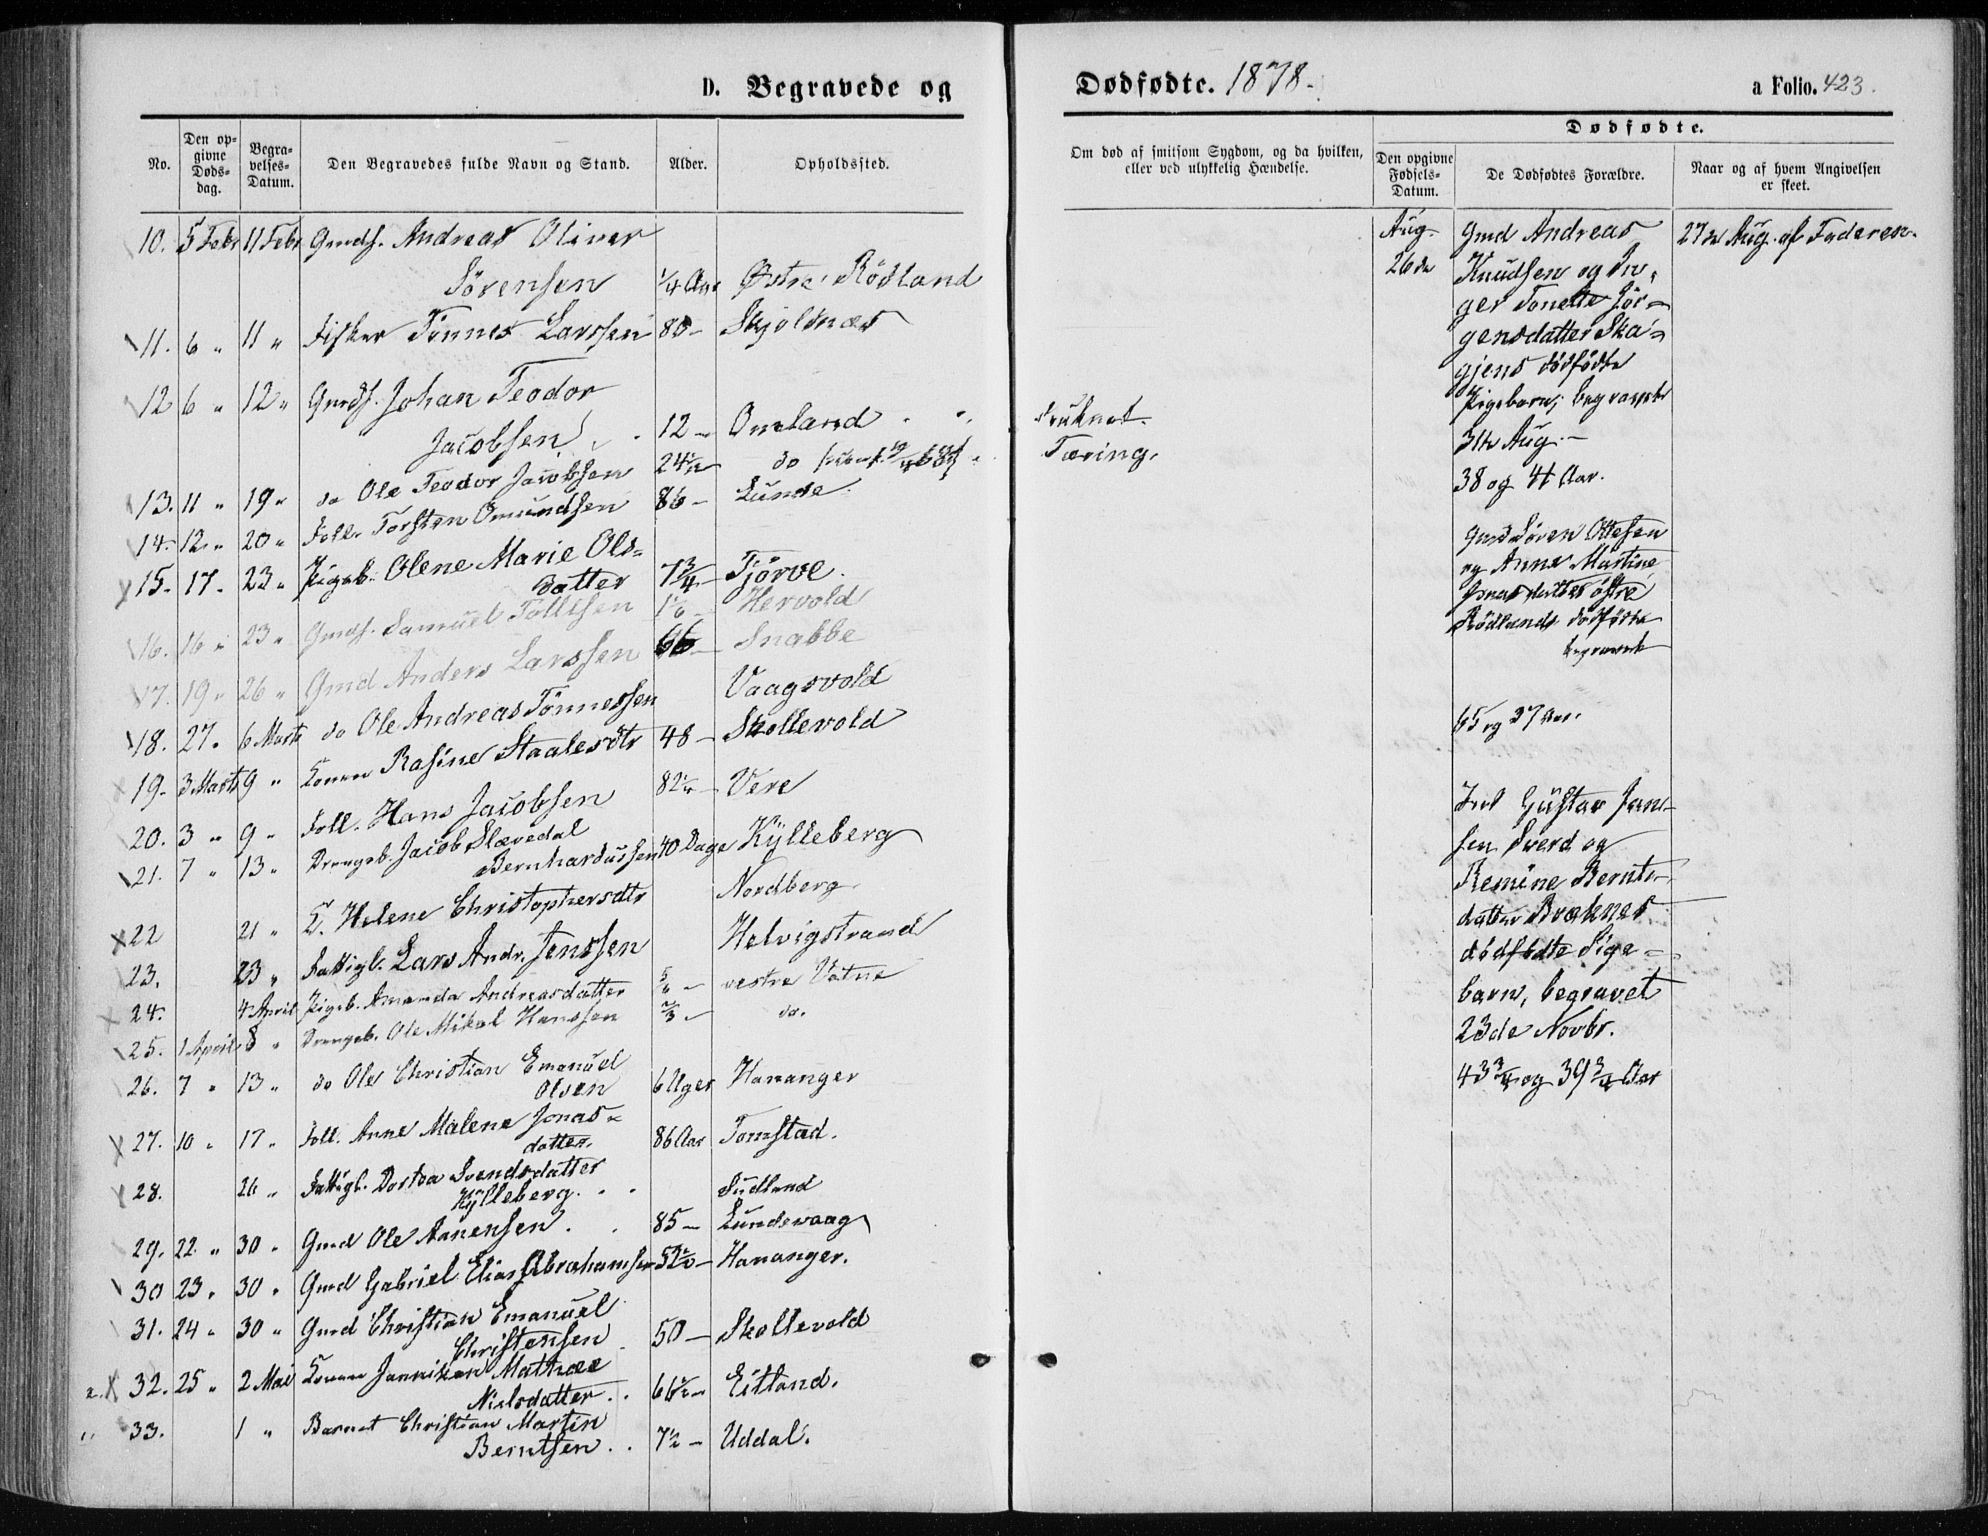 D. Begravede og
No. Den opgivne Dødsdag. Begravelses-Datum. Den Begravedes fulde Navn og Stand. Alder. Opholdssted.
10. 5 Febr 11 Febr Gmds. Andreas Oliver
Sörensen 1/4 Aar Østre Rödland
11. 6 " 11 " Fisker Tönnes Larssen 80 - Skjolnæs
12 6 " 12 " Gmds. Johan Teodor
Jacobsen 12 - Omland
13. 11 " 19 " do Ole Teodor Jacobsen 24 1/2 do
14. 12 " 20 " Foll. Torsten Omundsen 86 - Lunde
15. 17. 23 " Pigeb. Olene Marie Ols-
datter 7 3/4 - Tjörve.
16. 16 " 23 " Gmds. Samuel Tollisen Hervold
17. 19 " 26 " Gmd Anders Larssen 66 - Snabbe
18. 27. 6 Marts do Ole Andreas Tönnessen Vaagsvold
19. 3 Marts 9 " Konen Rasine Staalesdtr 48 - Skollevold
20. 3 " 9 " Foll. Hans Jacobsen 82 1/2 - Vere
21. 7 " 13 " Drengeb. Jacob Slævedal
Bernhardussen 40 Dage Kylleberg
22 21 " E. Helene Christophersdtr Nordberg.
23. 23 " Fattigl. Lars Andr. Jenssen Helvigstrand
24. 4 April Pigeb. Amanda Andreasdatter vestre Vatne
25. 1 April 8 " Drengeb. Ole Mikal Hanssen 2/3 - do.
26. 7 " 13 " do Ole Christian Emanuel
Olsen 6 Uger Hananger
27. 10 " 17 " Foll. Anne Malene Jonas-
datter. 86 Aar Tomstad.
28. 26 " Fattigl. Dortea Svendsdatter
Kylleberg Sudland
29. 22 " 30 " Gmd Ole Aanensen 85 - Lundevaag
30 23 " 30 " Gmd Gabriel Elias Abrahamsen Hananger.
31. 24 " 30 " Gmd Christian Emanuel
Christensen 50 - Skollevold
32. 25 " 2 Mai Konen Janniken Mathæe
Nielsdatter 66 1/2 - Eitland.
33. 1 " Barnet Christian Martin
Berntsen 7 1/2 - Uddal.
Dødfødte. 1878.
a Folio. 423.
Dødfødte.
Om død af smitsom Sygdom, og da hvilken, eller ved ulykkelig Hændelse. Den opgivne Fødsels-Datum. De Dødfødtes Forældre. Naar og af hvem Angivelsen er skeet.
Druknet.
Tæring.
Aug. 26de
Gmd Andreas 27de Aug. af Faderen.
Knudsen og In-
ger Tonette Jör-
gensdatter Ska-
gjens dödfödte
Pigebarn, begravet
31te Aug. -
38 og 41 Aar.
Gmd Sören Ottesen
og Anne Martine
Jonasdatter östre
Rödlands dödfödte
begravet
65 og 37 Aar.
Gustav Jan-
sen Sverd og
Remine Bernts-
datter Bræknes
dödfödte Pige-
barn, begravet
23de Novbr.
43 3/4 og 39 3/4 Aar